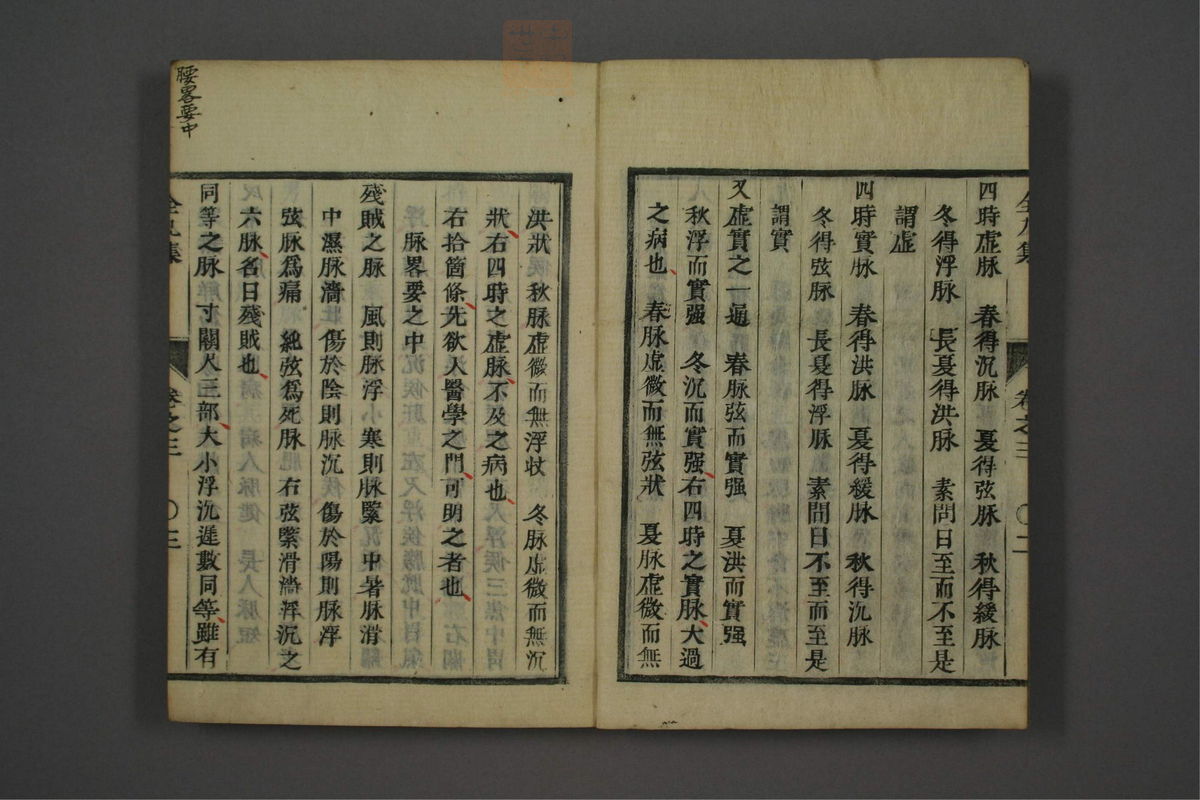 四時虛脉　春得沉脉　夏得弦脉　秋得緩脉
冬得浮脉　長夏得洪脉　素問曰至而不至是
謂虛
四時實脉　春得洪脉　夏得緩脉　秋得沉脉
冬得弦脉　長夏得浮脉　素問曰不至而至是
謂實
又虛實之一通　春脉弦而實强　夏洪而實强
秋浮而實强　冬沉而實强右四時之實脉大過
之病也　春脉虛微而無弦狀　夏脉虛微而無
全九集　卷之三　〇二
洪狀　秋脉虛微而無浮狀　冬脉虛微而無沉
狀右四時之虛脉不及之病也
右拾箇條先欲入醫學之門可明之者也
脉畧要之中
殘賊之脉　風則脉浮　寒則脉緊　中暑脉滑
中濕脉濇　傷於陰則脉沉　傷於陽則脉浮
弦脉爲痛　純弦爲死脉　右弦緊滑濇浮沉之
六脉名曰殘賊也
同等之脉　寸關人三部大小浮沉遲數同等雖有
全九集　卷之三　〇三
腰畧要中